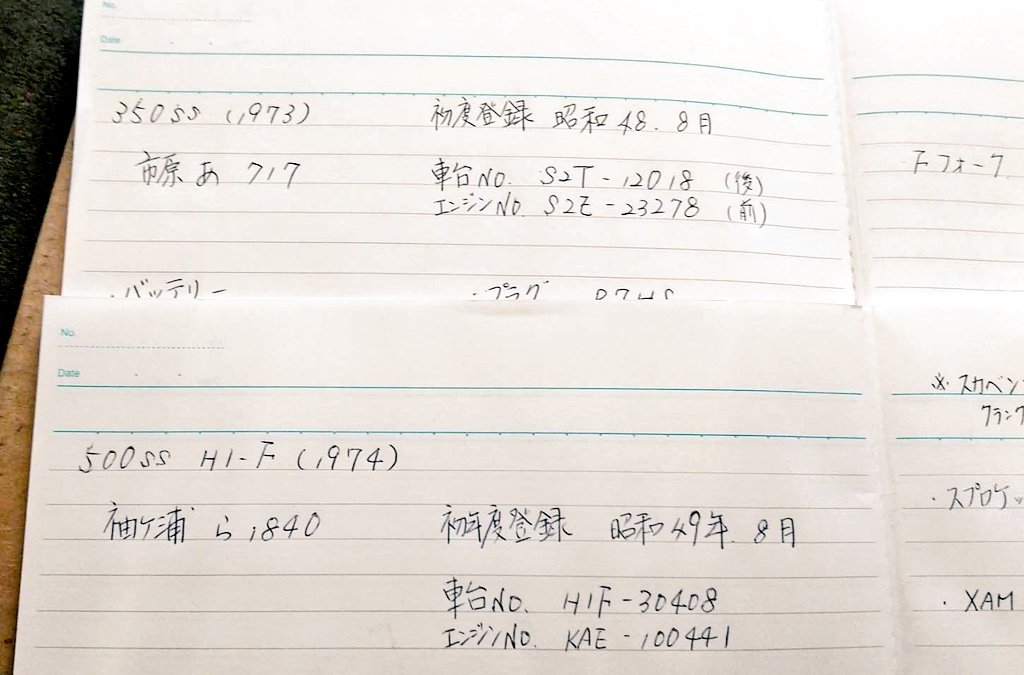 No.
Date
350SS (1973)
初度登録 昭和48. 8月
市原 あ 717
車台NO. S2T-12018 (後)
エンジンNO. S2E-23278 (前)
・バッテリー
・プラグ
Fフォーク
No.
Date
500SS H1-F (1974)
袖ケ浦 ら 1840
初年度登録 昭和49年. 8月
車台NO. H1F-30408
エンジンNO. KAE-100441
※ スカベン
クランク
・スプロケッ
・XAM